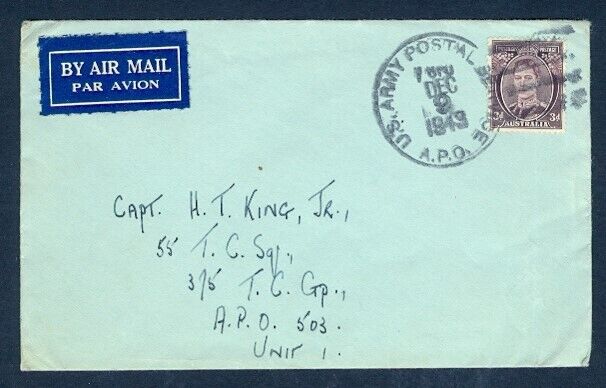 BY AIR MAIL
PAR AVION
U.S. ARMY POSTAL
A.P.O.
DEC
9
1943
POSTAGE
3d AUSTRALIA 3d
CAPT. H. T. KING, JR.,
55 T. C. Sq.,
375 T. C. Gp.,
A.P.O. 503.
UNIT 1.